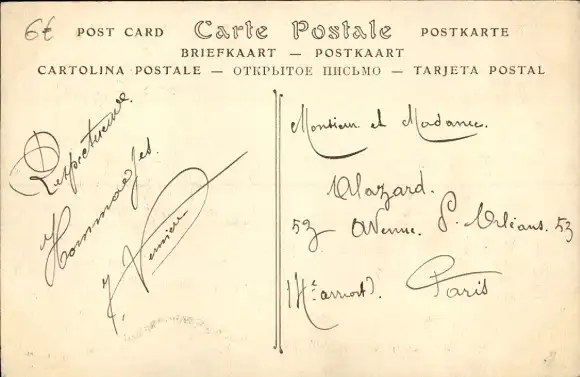 6€
POST CARD Carte Postale POSTKARTE
BRIEFKAART — POSTKAART
CARTOLINA POSTALE — ОТКРЫТОЕ ПИСЬМО — TARJETA POSTAL
Respectueux
Hommages.
Monsieur et Madame.
Alazard.
53 Avenue. d'Orléans. 53
Paris